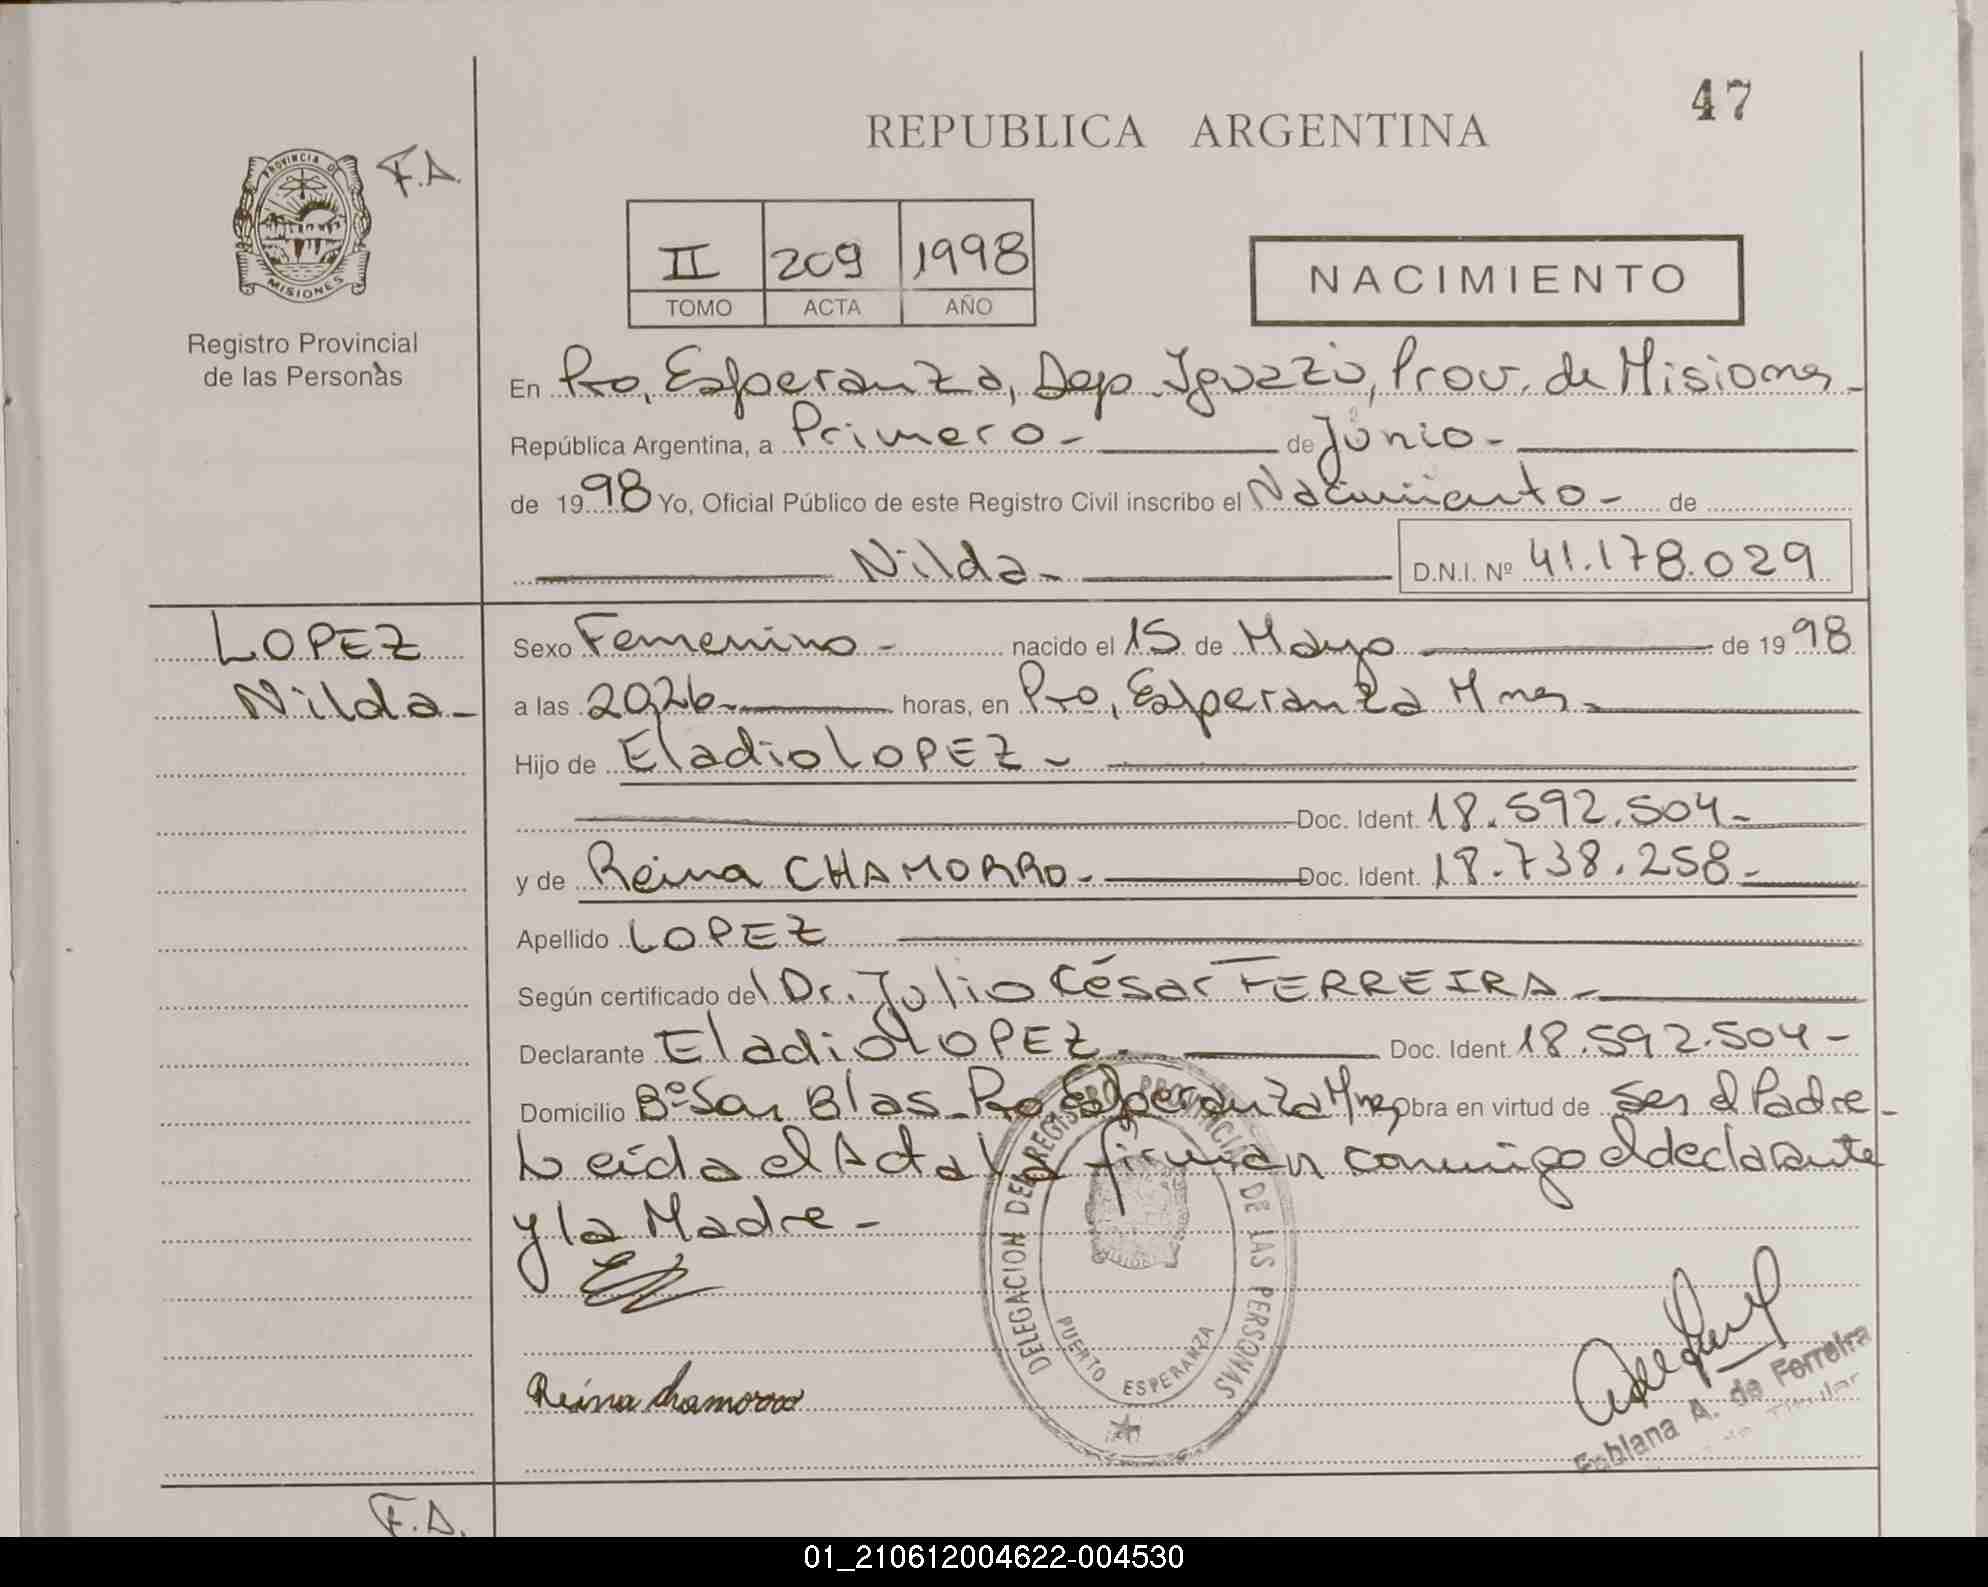 47
REPUBLICA ARGENTINA
F.A.
PROVINCIA DE MISIONES
Registro Provincial
de las Personas
II 209 1998
TOMO ACTA AÑO
NACIMIENTO
En Pto, Esperanza, Dep. Iguazú, Prov. de Misiones-
República Argentina, a Primero- de Junio-
de 1998 Yo, Oficial Público de este Registro Civil inscribo el Nacimiento- de
Nilda- D.N.I. Nº 41.178.029
LOPEZ
Nilda-
Sexo Femenino- nacido el 15 de Mayo de 1998
a las 20,26- horas, en Pto, Esperanza Mnes-
Hijo de Eladio LOPEZ-
Doc. Ident. 18.592.504-
y de Reina CHAMORRO- Doc. Ident. 18.738.258-
Apellido LOPEZ
Según certificado del Dr. Julio César FERREIRA-
Declarante Eladio LOPEZ- Doc. Ident. 18.592.504-
Domicilio Bº San Blas-Pto Esperanza Mnes, Obra en virtud de Ser el Padre-
Leída el Acta la firman conmigo el declarante
y la Madre-
DELEGACION DEL REGISTRO PROVINCIAL DE LAS PERSONAS
PUERTO ESPERANZA
Reina chamorro
Fabiana A. de Ferreira
Titular
F.A.
01_210612004622-004530